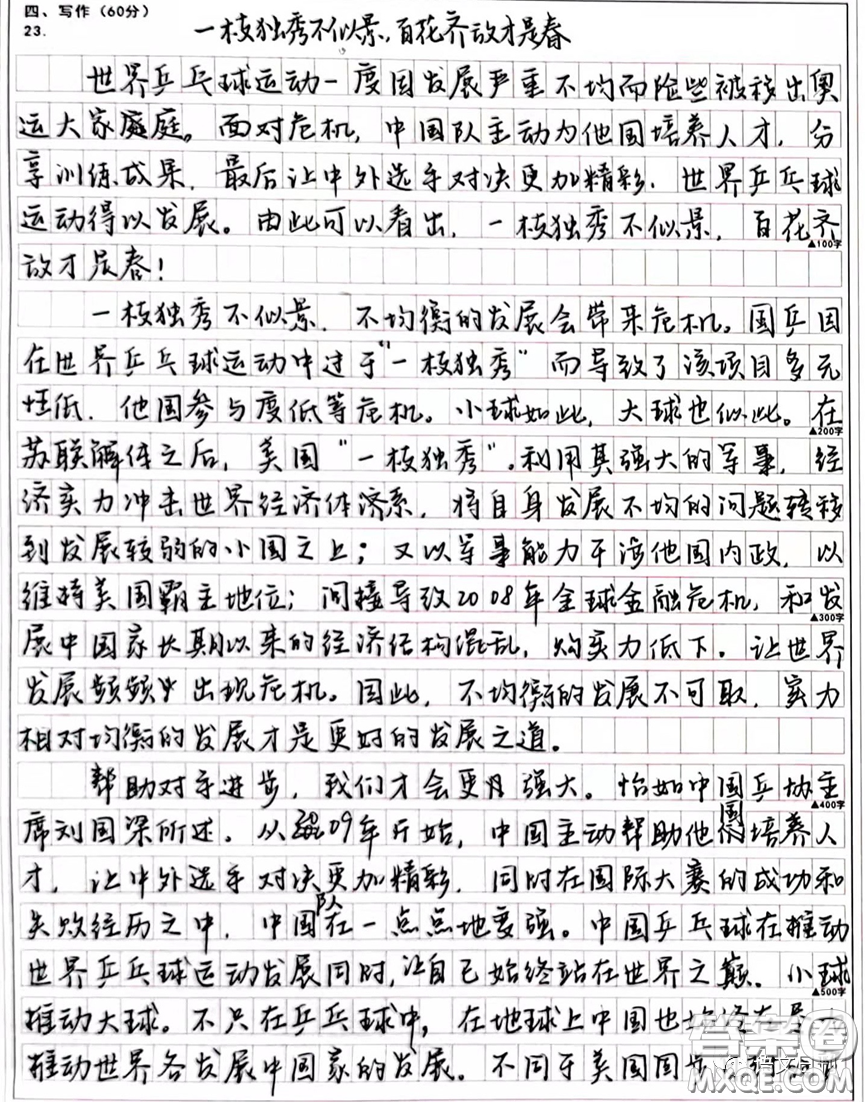 四、写作（60分）
23.
一枝独秀不似景，百花齐放才是春
世界乒乓球运动一度因发展严重不均而险些被移出奥
运大家庭。面对危机，中国队主动为他国培养人才，分
享训练成果，最后让中外选手对决更加精彩，世界乒乓球
运动得以发展。由此可以看出，一枝独秀不似景，百花齐
▲100字
放才是春！
一枝独秀不似景，不均衡的发展会带来危机。国乒因
在世界乒乓球运动中过于“一枝独秀”而导致了该项目多元
性低，他国参与度低等危机。小球如此，大球也似此。在
▲200字
苏联解体之后，美国“一枝独秀”，利用其强大的军事，经
济实力冲击世界经济体系，将自身发展不均的问题转移
到发展较弱的小国之上；又以军事能力干涉他国内政，以
维持美国霸主地位；间接导致2008年全球金融危机，和发
▲300字
展中国家长期以来的经济结构混乱，购买力低下。让世界
发展频频出现危机。因此，不均衡的发展不可取，实力
相对均衡的发展才是更好的发展之道。
帮助对手进步，我们才会更强大。恰如中国乒协主
▲400字
席刘国梁所述。从09年开始，中国主动帮助他国培养人
才，让中外选手对决更加精彩，同时在国际大赛的成功和
失败经历之中，中国队在一点点地变强。中国乒乓球在推动
世界乒乓球运动发展同时，让自己始终站在世界之巅。小球
▲500字
推动大球。不只在乒乓球中，在地球上中国也始终在
推动世界各发展中国家的发展。不同于美国
答案圈
MXQE.COM